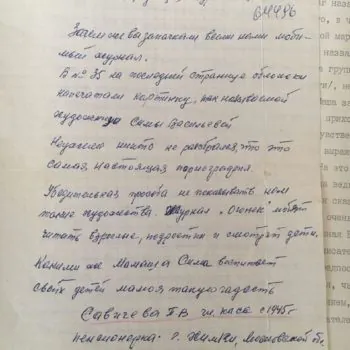 64496
Зачем же вы запачкали всеми нами люби-
мый журнал.
В № 35 на последней странице обложки
напечатали картинку, так называемой
художницы Симы Васильевой
Неужели никто не разобрался, что это
самая настоящая порнография.
Убедительная просьба не показывать нам
такие художества. Журнал „Огонек" любят
читать взрослые, подростки и смотрят дети.
Какими же Мамаша Сима воспитает
своих детей малюя такую гадость
Савичева Т.В. чл. КПСС с 1945 г.
пенсионерка. г. Химки, Московской об.